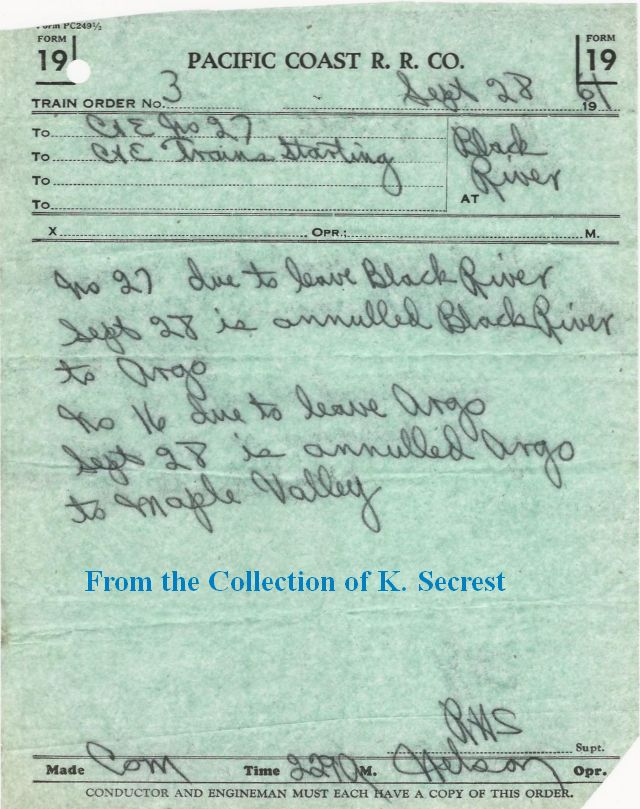 Form PC249½
FORM 19
FORM 19
PACIFIC COAST R. R. CO.
TRAIN ORDER No. 3 Sept 28 1961
To C&E No 27
To C&E Trains Starting
To
To
AT Black River
X OPR.: M.
No 27 due to leave Black River
Sept 28 is annulled Black River
to Argo
No 16 due to leave Argo
Sept 28 is annulled Argo
to Maple Valley
From the Collection of K. Secrest
RHS Supt.
Made Com Time M. Nelson Opr.
CONDUCTOR AND ENGINEMAN MUST EACH HAVE A COPY OF THIS ORDER.